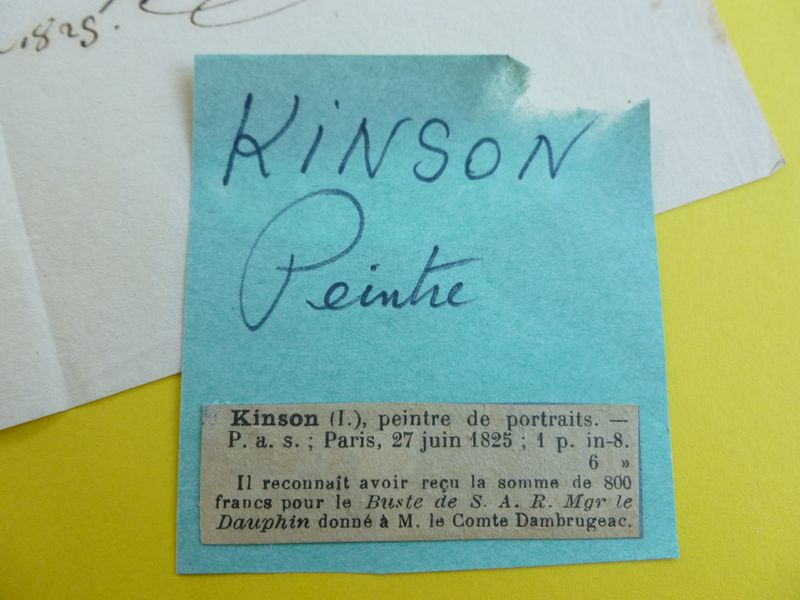 1825.
KINSON
Peintre
Kinson (I.), peintre de portraits. —
P. a. s. ; Paris, 27 juin 1825 ; 1 p. in-8.
6 »
Il reconnaît avoir reçu la somme de 800
francs pour le Buste de S. A. R. Mgr le
Dauphin donné à M. le Comte Dambrugeac.